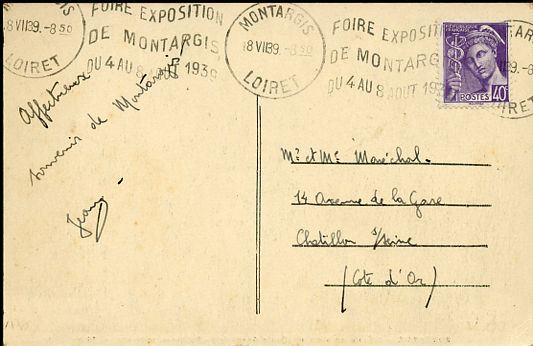 MONTARGIS
8 VII 39. - 8 50
LOIRET
FOIRE EXPOSITION
DE MONTARGIS
DU 4 AU 8 AOUT 1939
MONTARGIS
8 VII 39. - 8 50
LOIRET
FOIRE EXPOSITION
DE MONTARGIS
DU 4 AU 8 AOUT 193
POSTES 40
LOIRET
Affectueux
souvenir de Montargis
Jean
Mr et Me Maréchal.
14 Avenue de la Gare
Chatillon s/Seine
(Cote d'Or)